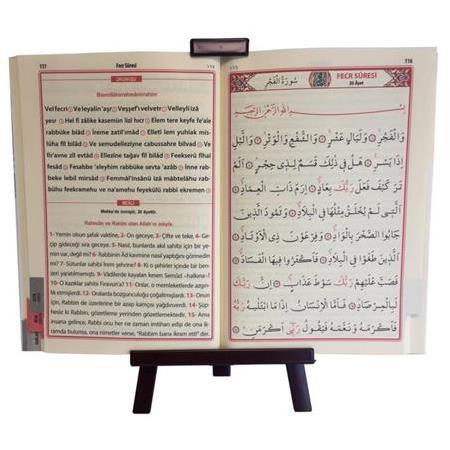 117 Fecr Sûresi ١١٦
OKUNUŞU
Bismillâhirrahmânirrahîm
Vel fecri Ve leyalin 'aşr Veşşef'ı velvetr Velleyli izâ
yesr Hel fî zâlike kasemün lizî hıcr Elem tera keyfe fe'ale
rabbüke biâd İreme zatil'ımâd Elletî lem yuhlak mis-
lüha fil bilâd Ve semudellezîyne cabussahre bilvad Ve
fir'avne zîl evtâd Ellezine tağav fil bilâd Feekserû fîhal
fesâd Fesabbe 'aleyhim rabbüke sevta 'azâb İnne rab-
beke lebil mirsâd Femmâl'insânü izâ mâbtelâhu rab-
bühu feekramehu ve na'amehu feyekülü rabbî ekremen
MEÂLİ
Mekke'de inmiştir, 30 âyettir.
Rahmân ve Rahîm olan Allah'ın adıyla.
1- Yemin olsun şafak vaktine, 2- On geceye, 3- Çifte ve teke, 4- Ge-
çip gideceği sıra geceye. 5- Nasıl, bunlarda akıl sahibi için bir ye-
min var, değil mi? 6- Rabbinin Âd kavmine nasıl yaptığını görmedin
mi? 7- Sütunlar sahibi İrem şehrine? 8- Ki o şehirler içinde bir ben-
zeri yaratılmamıştı. 9- Vâdilerde kayaları kesen Semûd -halkına-!
10- O kazıklar sahibi Firavun'a? 11- Onlar, o memleketlerde azgın-
lık etmişlerdi. 12- Oralarda bozgunculuğu çoğaltmışlardı. 13- Onun
için, Rabbin de üzerlerine bir azap kamçısı yağdırıverdi. 14- Şüp-
hesiz ki Rabbin, gözetleme yerinden gözetlemektedir. 15- Ama
insana gelince, Rabbi onu her ne zaman imtihan edip de ona ik-
ramda bulunsa, ona nimetler verse, "Rabbim bana ikram etti" der.
116
سُورَةُ الْفَجْرِ FECR SÛRESİ
30 Âyet
بِسْمِ اللّٰهِ الرَّحْمٰنِ الرَّحِيمِ
وَالْفَجْرِ وَلَيَالٍ عَشْرٍ وَالشَّفْعِ وَالْوَتْرِ وَالَّيْلِ
اِذَا يَسْرِ هَلْ فِي ذٰلِكَ قَسَمٌ لِذِي حِجْرٍ اَلَمْ
تَرَ كَيْفَ فَعَلَ رَبُّكَ بِعَادٍ اِرَمَ ذَاتِ الْعِمَادِ
اَلَّتِي لَمْ يُخْلَقْ مِثْلُهَا فِي الْبِلَادِ وَثَمُودَ الَّذِينَ
جَابُوا الصَّخْرَ بِالْوَادِ وَفِرْعَوْنَ ذِي الْاَوْتَادِ
اَلَّذِينَ طَغَوْا فِي الْبِلَادِ فَاَكْثَرُوا فِيهَا الْفَسَادَ
فَصَبَّ عَلَيْهِمْ رَبُّكَ سَوْطَ عَذَابٍ اِنَّ رَبَّكَ
لَبِالْمِرْصَادِ فَاَمَّا الْاِنْسَانُ اِذَا مَا ابْتَلٰيهُ رَبُّهُ
فَاَكْرَمَهُ وَنَعَّمَهُ فَيَقُولُ رَبِّي اَكْرَمَنِ